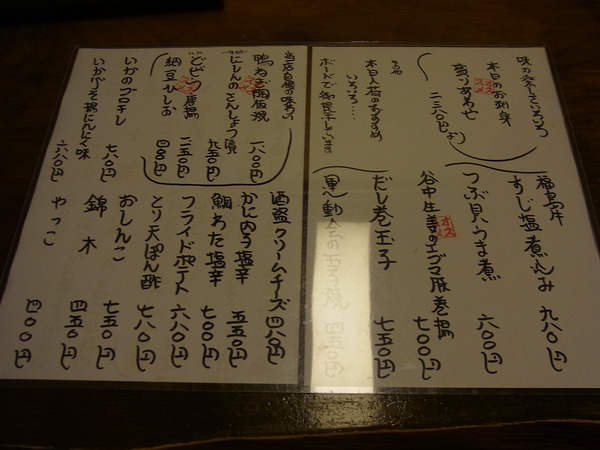 味の楽しさいろいろ
本日のお刺身
盛りあわせ
二三八〇円より
その他
本日入荷のおすすめ
いろいろ…
ボードで御提示しています
福島牛
すじ塩煮込み 九八〇円
つぶ貝うま煮 六〇〇円
谷中生姜のエゴマ豚巻揚 七〇〇円
だし巻玉子 七五〇円
運動会の玉子焼 四五〇円
当店自慢の味わい
鴨ねぎ陶板焼 一八〇〇円
にしんのさんしょう漬 九五〇円
どどンヮ唐揚 一二五〇円
納豆ひしお 四〇〇円
いかのブロチレ 七八〇円
いかバター揚にんにく味 六八〇円
酒盗クリームチーズ 四八〇円
かに内子塩辛 五五〇円
鯛わた塩辛 七〇〇円
フライドポテト 六八〇円
とり天ぽん酢 七八〇円
おしんこ 七五〇円
錦木 四五〇円
やっこ 四〇〇円